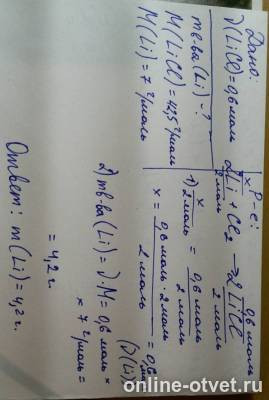 Дано:
ν(LiCl)=0,6 моль
m в-ва(Li)-?
M(LiCl)=42,5 г/моль
M(Li)=7 г/моль
Р-е:
x 0,6 моль
2Li + Cl₂ → 2LiCl
2 моль 2 моль
1) x/2 моль = 0,6 моль/2 моль
x = 0,6 моль · 2 моль/2 моль = 0,6
(ν(Li))
2) m в-ва(Li)=ν·M=0,6 моль ×
× 7 г/моль =
= 4,2 г.
Ответ: m(Li)=4,2 г.
online-otvet.ru